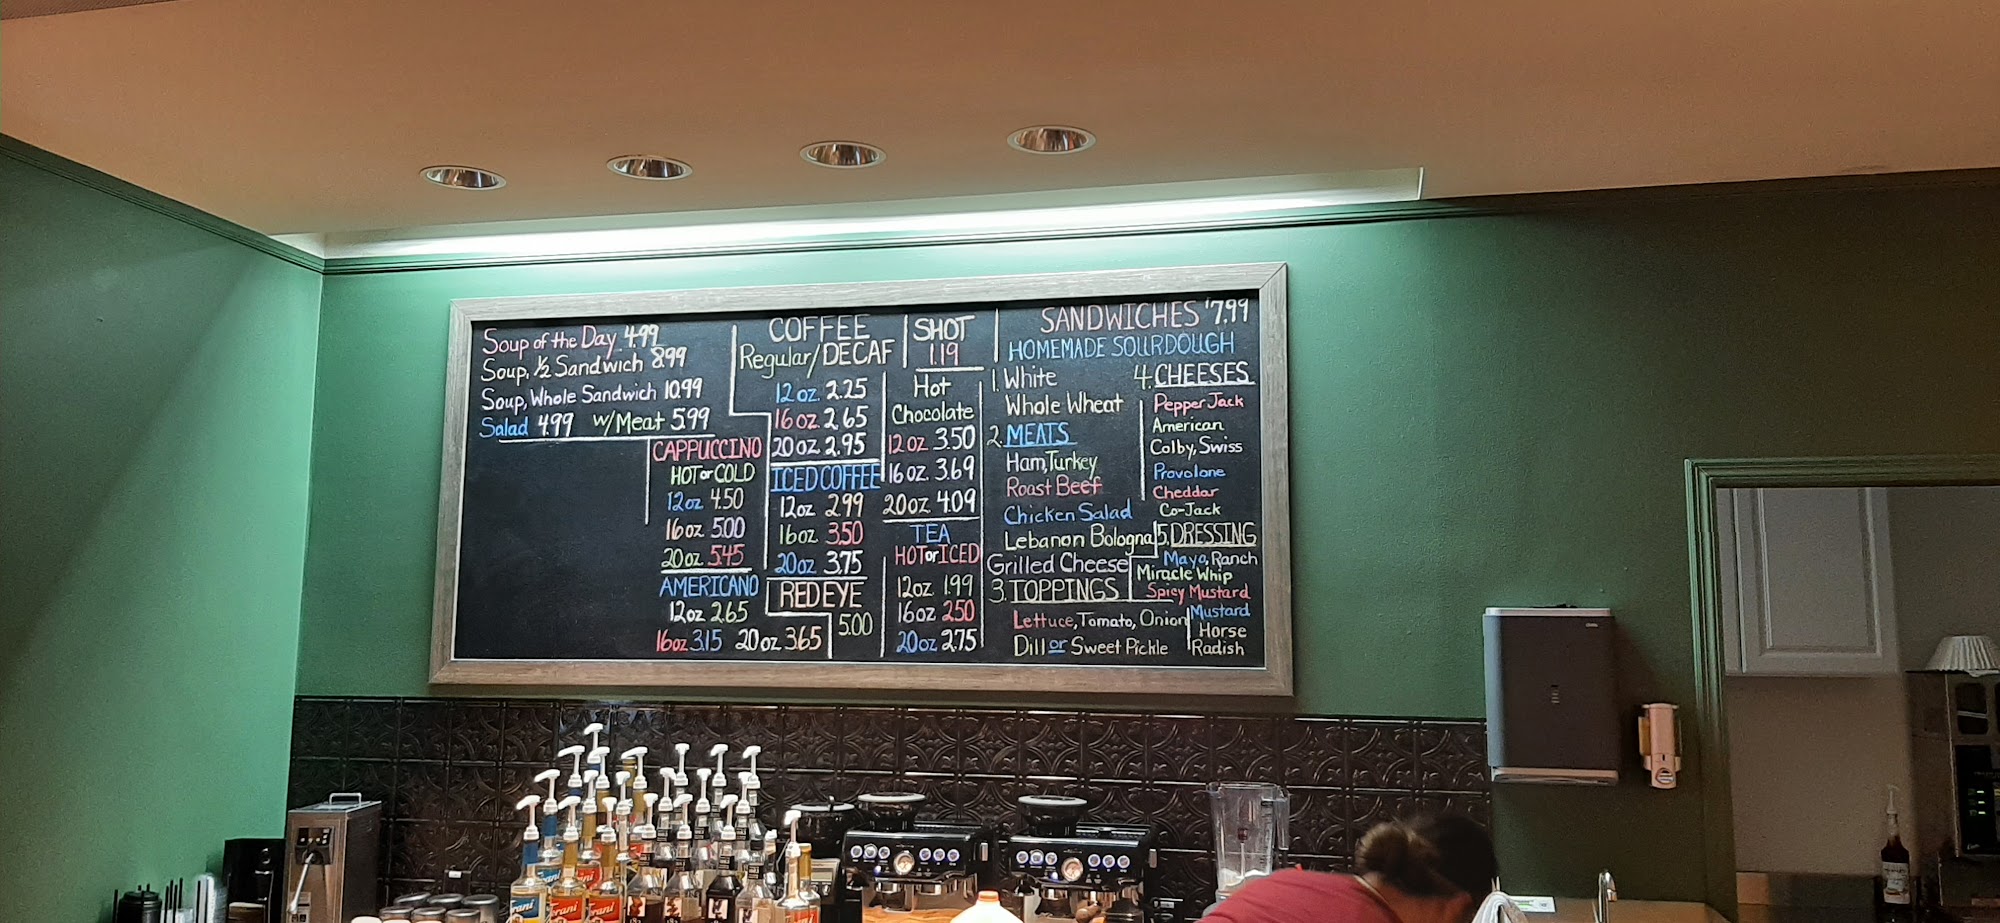 Soup of the Day 4.99
Soup, 1/2 Sandwich 8.99
Soup, Whole Sandwich 10.99
Salad 4.99 w/Meat 5.99
CAPPUCCINO
HOT or COLD
12oz 4.50
16oz 5.00
20oz 5.45
AMERICANO
12oz 2.65
16oz 3.15 20oz 3.65
COFFEE
Regular/DECAF
12oz. 2.25
16oz. 2.65
20oz. 2.95
ICED COFFEE
12oz 2.99
16oz 3.50
20oz 3.75
RED EYE
5.00
SHOT
1.19
Hot
Chocolate
12oz. 3.50
16oz. 3.69
20oz 4.09
TEA
HOT or ICED
12oz. 1.99
16oz 2.50
20oz 2.75
SANDWICHES $7.99
HOMEMADE SOURDOUGH
1. White
Whole Wheat
2. MEATS
Ham, Turkey
Roast Beef
Chicken Salad
Lebanon Bologna
Grilled Cheese
3. TOPPINGS
Lettuce, Tomato, Onion
Dill or Sweet Pickle
4. CHEESES
Pepper Jack
American
Colby, Swiss
Provolone
Cheddar
Co-Jack
5. DRESSING
Mayo, Ranch
Miracle Whip
Spicy Mustard
Mustard
Horse
Radish
Torani
Torani